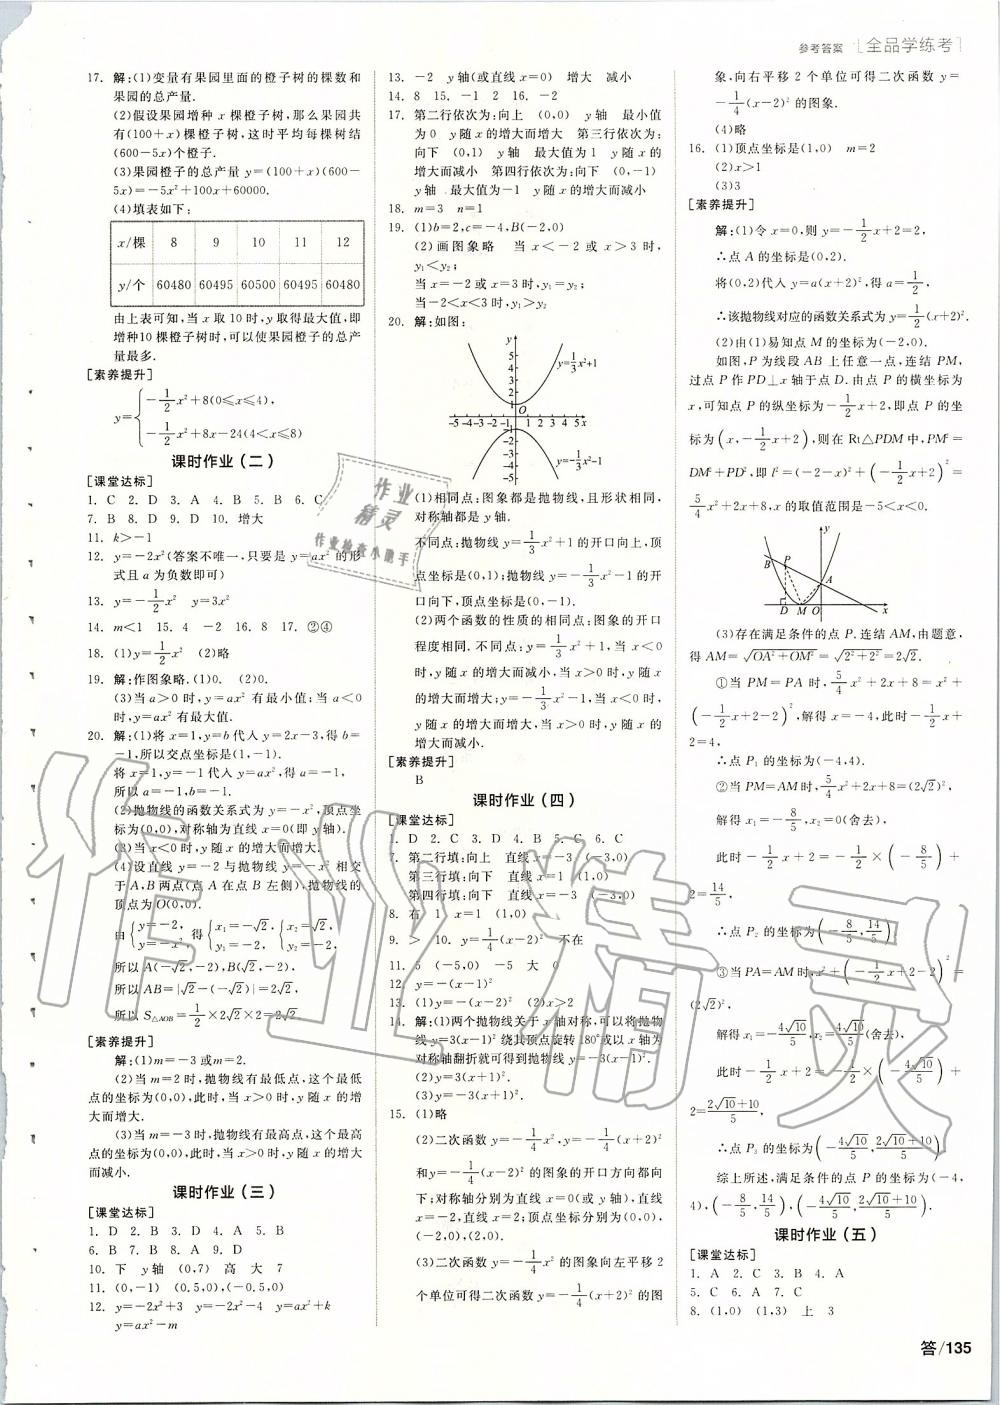 参考答案 [全品学练考]
17. 解:(1)变量有果园里面的橙子树的棵数和
果园的总产量.
(2)假设果园增种 x 棵橙子树,那么果园共
有(100+x)棵橙子树,这时平均每棵树结
(600-5x)个橙子.
(3)果园橙子的总产量 y=(100+x)(600-
5x)=-5x²+100x+60000.
(4)填表如下:
x/棵 8 9 10 11 12
y/个 60480 60495 60500 60495 60480
由上表可知,当 x 取 10 时,y 取得最大值,即
增种10 棵橙子树时,可以使果园橙子的总产
量最多.
[素养提升]
y={-1/2x²+8(0≤x≤4),
-1/2x²+8x-24(4<x≤8)
课时作业(二)
[课堂达标]
1. C 2. D 3. A 4. B 5. B 6. C
7. B 8. D 9. D 10. 增大
11. k>-1
12. y=-2x²(答案不唯一,只要是 y=ax² 的形
式且 a 为负数即可)
13. y=-1/2x² y=3x²
14. m<1 15. 4 -2 16. 8 17. ②④
18. (1)y=1/2x² (2)略
19. 解:作图象略.(1)0. (2)0.
(3)当 a>0 时,y=ax² 有最小值;当 a<0
时,y=ax² 有最大值.
20. 解:(1)将 x=1,y=b 代入 y=2x-3,得 b=
-1,所以交点坐标是(1,-1).
将 x=1,y=-1 代入 y=ax²,得 a=-1,
所以 a=-1,b=-1.
(2)抛物线的函数关系式为 y=-x²,顶点坐
标为(0,0),对称轴为直线 x=0(即 y 轴).
(3)当 x<0 时,y 随 x 的增大而增大.
(4)设直线 y=-2 与抛物线 y=-x² 相交
于 A,B 两点(点 A 在点 B 左侧),抛物线的
顶点为 O(0,0).
由{y=-2, y=-x² 得{x₁=-√2, y₁=-2, {x₂=√2, y₂=-2,
所以 A(-√2,-2),B(√2,-2).
所以 AB=|√2-(-√2)|=2√2,
所以 S△AOB=1/2×2√2×2=2√2.
[素养提升]
解:(1)m=-3 或m=2.
(2)当 m=2 时,抛物线有最低点,这个最低
点的坐标为(0,0),此时,当 x>0 时,y 随 x 的增
大而增大.
(3)当 m=-3 时,抛物线有最高点,这个最高
点的坐标为(0,0),此时,当 x>0 时,y 随 x 的增大
而减小.
课时作业(三)
[课堂达标]
1. D 2. B 3. D 4. A 5. B
6. B 7. B 8. A 9. D
10. 下 y轴 (0,7) 高 大 7
11. (0,-1) (0.5,0),(-0.5,0)
12. y=-2x²+3 y=-2x²-4 y=ax²+k
y=ax²-m
13. -2 y轴(或直线 x=0) 增大 减小
14. 8 15. -1 2 16. -2
17. 第二行依次为:向上 (0,0) y轴 最小值
为 0 y随 x 的增大而增大 第三行依次为:
向下 (0,1) y 轴 最大值为1 y 随 x 的
增大而减小 第四行依次为:向下 (0,-1)
y轴 最大值为-1 y随 x 的增大而减小
18. m=3 n=1
19. (1)b=2,c=-4,B(-2,0)
(2)画图象略 当 x<-2 或 x>3 时,
y₁<y₂;
当 x=-2 或 x=3 时,y₁=y₂;
当-2<x<3 时,y₁>y₂
20. 解:如图:
y
y=1/3x²+1
5
4
3
2
1
O
-5 -4 -3 -2 -1 1 2 3 4 5 x
y=-1/3x²-1
(1)相同点:图象都是抛物线,且形状相同,
对称轴都是 y轴.
不同点:抛物线 y=1/3x²+1 的开口向上,顶
点坐标是(0,1);抛物线 y=-1/3x²-1 的开
口向下,顶点坐标是(0,-1).
(2)两个函数的性质的相同点:图象的开口
程度相同.不同点:y=1/3x²+1,当 x<0
时,y 随 x 的增大而减小,当 x>0 时,y 随 x
的增大而增大;y=-1/3x²-1,当 x<0 时,
y 随 x 的增大而增大,当 x>0 时,y 随 x 的
增大而减小.
[素养提升]
B
课时作业(四)
[课堂达标]
1. D 2. C 3. D 4. B 5. C 6. C
7. 第二行填:向上 直线 x=-3 (-3,0)
第三行填:向下 直线 x=1 (1,0)
第四行填:向下 直线 x=-3 (-3,0)
8. 右 1 x=1 (1,0)
9. > 10. y=1/4(x-2)² 不在
11. 5 (-5,0) -5 大 0
12. y=-(x-1)²
13. (1)y=-(x-2)² (2)x>2
14. 解:(1)两个抛物线关于 x 轴对称,可以将抛物
线 y=-3(x-1)² 绕其顶点旋转 180°或以 x 轴为
对称轴翻折就可得到抛物线 y=3(x-1)².
(2)y=3(x+1)².
(3)y=-3(x+1)².
15. (1)略
(2)二次函数 y=-1/4x²,y=-1/4(x+2)²
和y=-1/4(x-2)² 的图象的开口方向都向
下;对称轴分别为直线 x=0(或 y轴),直线
x=-2,直线 x=2;顶点坐标分别为(0,0),
(-2,0),(2,0).
(3)二次函数 y=-1/4x² 的图象向左平移 2
个单位可得二次函数 y=-1/4(x+2)² 的图
象,向右平移 2 个单位可得二次函数 y=
-1/4(x-2)² 的图象.
(4)略
16. (1)顶点坐标是(1,0) m=2
(2)x>1
(3)3
[素养提升]
解:(1)令 x=0,则 y=-1/2x+2=2,
∴点 A 的坐标是(0,2).
将(0,2)代入 y=a(x+2)²,得 a=1/2,
∴该抛物线对应的函数关系式为 y=1/2(x+2)².
(2)由(1)易知点 M 的坐标为(-2,0).
如图,P 为线段 AB 上任意一点,连结 PM,
过点 P 作 PD⊥x 轴于点 D.由点 P 的横坐标为
x,可知点 P 的纵坐标为-1/2x+2,即点 P 的坐
标为(x,-1/2x+2),则在 Rt△PDM 中,PM²=
DM²+PD²,即 l²=(-2-x)²+(-1/2x+2)²=
5/4x²+2x+8,x 的取值范围是-5<x<0.
y
B
P
A
D M O x
(3)存在满足条件的点 P.连结 AM,由题意,
得 AM=√OA²+OM²=√2²+2²=2√2.
①当 PM=PA 时,5/4x²+2x+8=x²+
(-1/2x+2-2)²,解得 x=-4,此时-1/2x+
2=4,
∴点 P₁ 的坐标为(-4,4).
②当 PM=AM 时,5/4x²+2x+8=(2√2)²,
解得 x₁=-8/5,x₂=0(舍去),
此时-1/2x+2=-1/2×(-8/5)+
2=14/5,
∴点 P₂ 的坐标为(-8/5,14/5).
③当 PA=AM 时,x²+(-1/2x+2-2)²=
(2√2)²,
解得 x₁=-4√10/5,x₂=4√10/5(舍去),
此时-1/2x+2=-1/2×(-4√10/5)+
2=2√10+10/5,
∴点 P₃ 的坐标为(-4√10/5,2√10+10/5).
综上所述,满足条件的点 P 的坐标为(-4,
4),(-8/5,14/5),(-4√10/5,2√10+10/5).
课时作业(五)
[课堂达标]
1. A 2. C 3. B 4. A
5. C 6. C 7. B
8. (1,0) (1,3) 上 3
答/135
作业精灵
作业
精灵
作业检查小助手